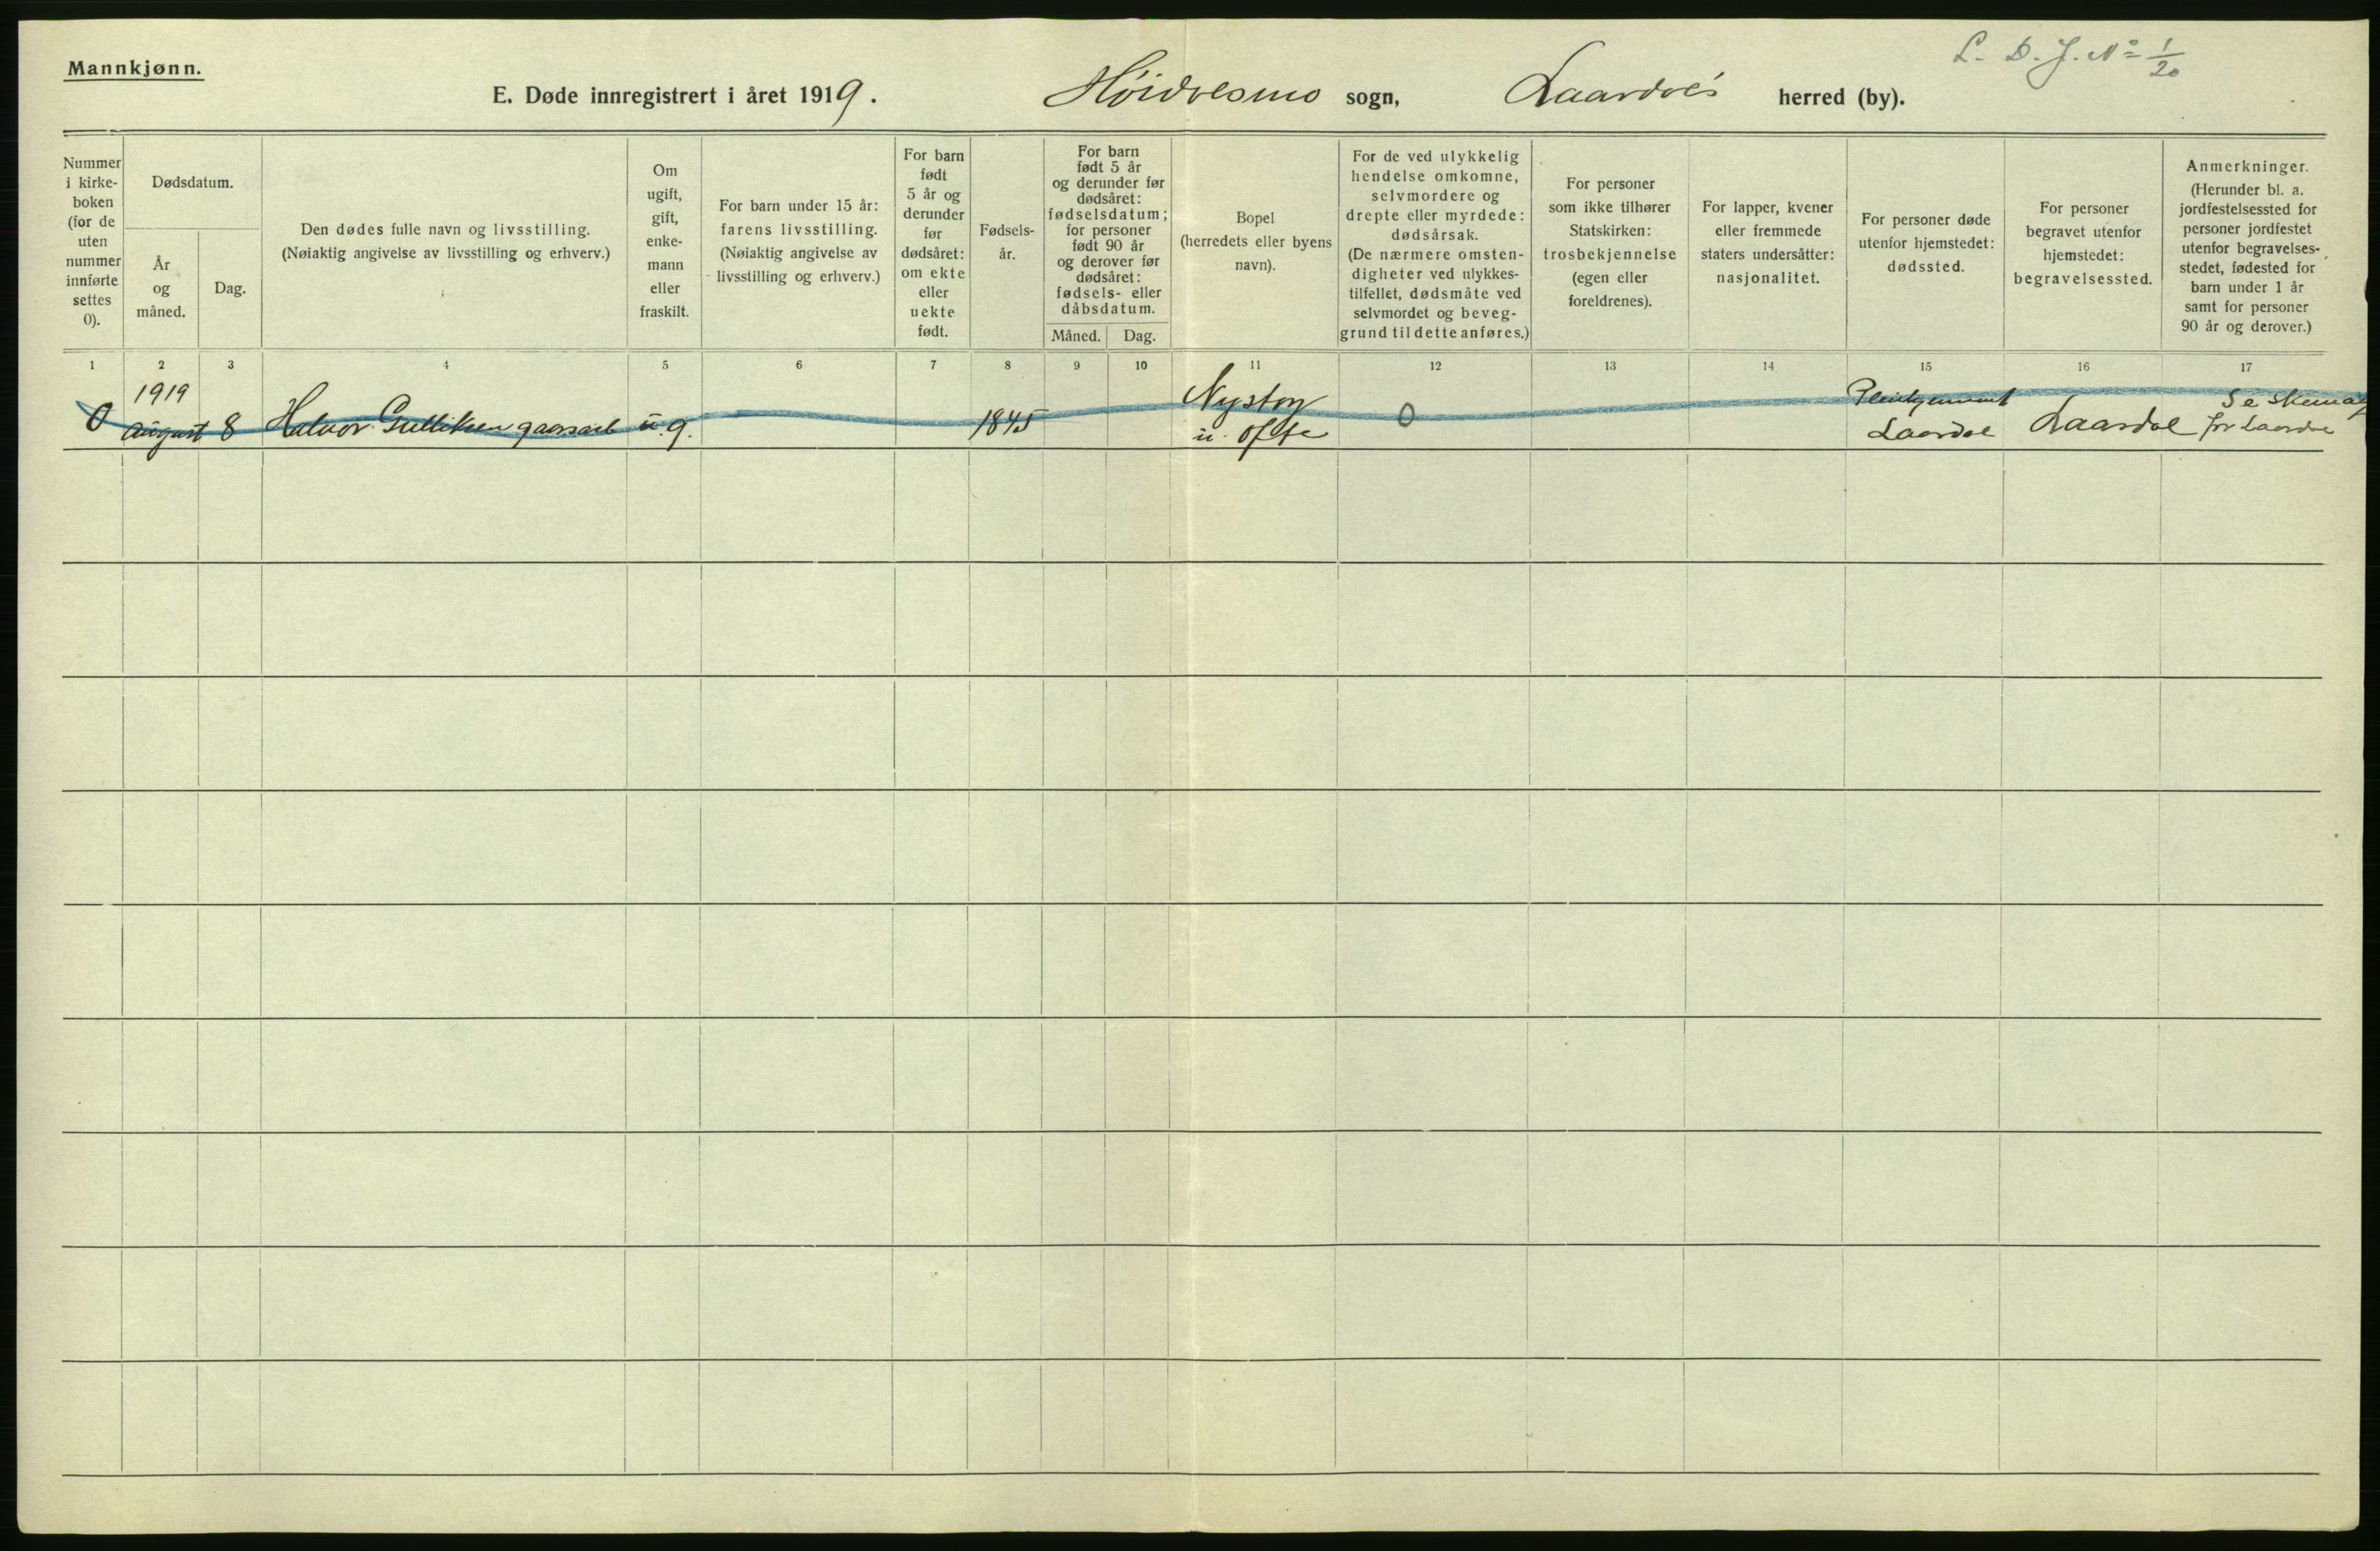 Mannkjønn.
L. D. J. No 1/20
E. Døde innregistrert i året 1919. Høidalsmo sogn, Laardals herred (by).
Nummer
i kirke-
boken
(for de
uten
nummer
innførte
settes
0).
Dødsdatum.
År
og
måned.
Dag.
Den dødes fulle navn og livsstilling.
(Nøiaktig angivelse av livsstilling og erhverv.)
Om
ugift,
gift,
enke-
mann
eller
fraskilt.
For barn under 15 år:
farens livsstilling.
(Nøiaktig angivelse av
livsstilling og erhverv.)
For barn
født
5 år og
derunder
før
dødsåret:
om ekte
eller
uekte
født.
Fødsels-
år.
For barn
født 5 år
og derunder før
dødsåret:
fødselsdatum;
for personer
født 90 år
og derover før
dødsåret:
fødsels- eller
dåbsdatum.
Måned. Dag.
Bopel
(herredets eller byens
navn).
For de ved ulykkelig
hendelse omkomne,
selvmordere og
drepte eller myrdede:
dødsårsak.
(De nærmere omsten-
digheter ved ulykkes-
tilfellet, dødsmåte ved
selvmordet og beveg-
grund til dette anføres.)
For personer
som ikke tilhører
Statskirken:
trosbekjennelse
(egen eller
foreldrenes).
For lapper, kvener
eller fremmede
staters undersåtter:
nasjonalitet.
For personer døde
utenfor hjemstedet:
dødssted.
For personer
begravet utenfor
hjemstedet:
begravelsessted.
Anmerkninger.
(Herunder bl. a.
jordfestelsessted for
personer jordfestet
utenfor begravelses-
stedet, fødested for
barn under 1 år
samt for personer
90 år og derover.)
1 2 3 4 5 6 7 8 9 10 11 12 13 14 15 16 17
1919
0 August 8 Halvor Gulliksen u.g. 1845
Nystog
u. Ofte
0
Laardal
Laardal
Se skema
for Laardal